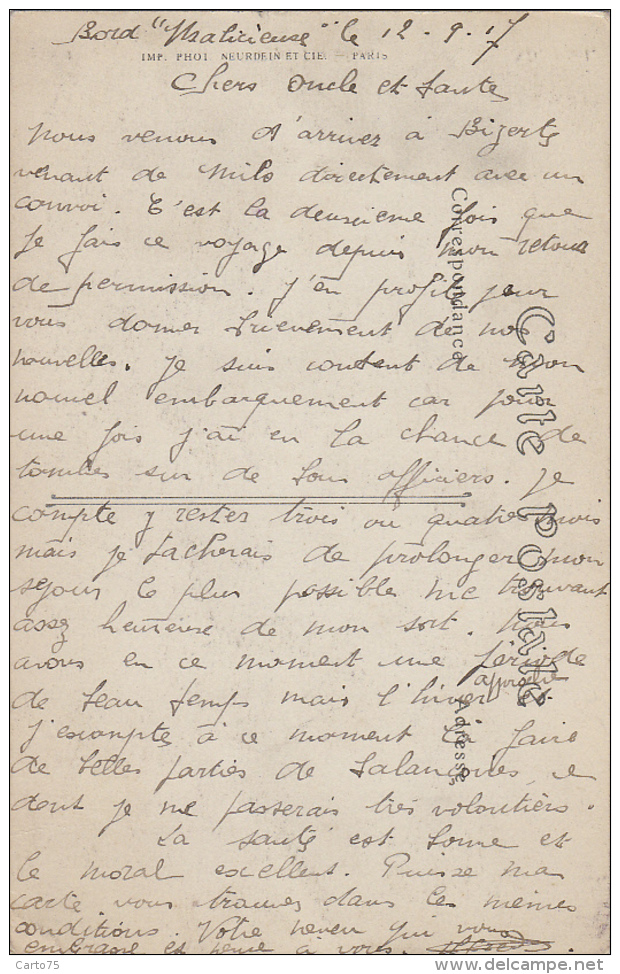 Bord "Malicieuse" le 12.9.17
IMP. PHOT. NEURDEIN ET CIE. — PARIS
Chers Oncle et Tante
Nous venons d'arriver à Bizerte
venant de Milo directement avec un
convoi. C'est la deuxième fois que
je fais ce voyage depuis mon retour
de permission. J'en profite pour
vous donner brièvement de nos
nouvelles. Je suis content de mon
nouvel embarquement car pour
une fois j'ai eu la chance de
tomber sur de bons officiers. Je
compte y rester trois ou quatre mois
mais je tacherais de prolonger mon
séjour le plus possible me trouvant
assez heureuse de mon sort. Nous
avons en ce moment une période
de beau temps mais l'hiver approche et
j'escompte à ce moment là faire
de belles parties de balançoires
dont je me passerais très volontiers.
La santé est bonne et
le moral excellent. Puisse ma
carte vous trouver dans les mêmes
conditions. Votre neveu qui vous
embrasse et pense à vous.
Carte postale
Correspondance
Adresse
Carto75
www.delcampe.net